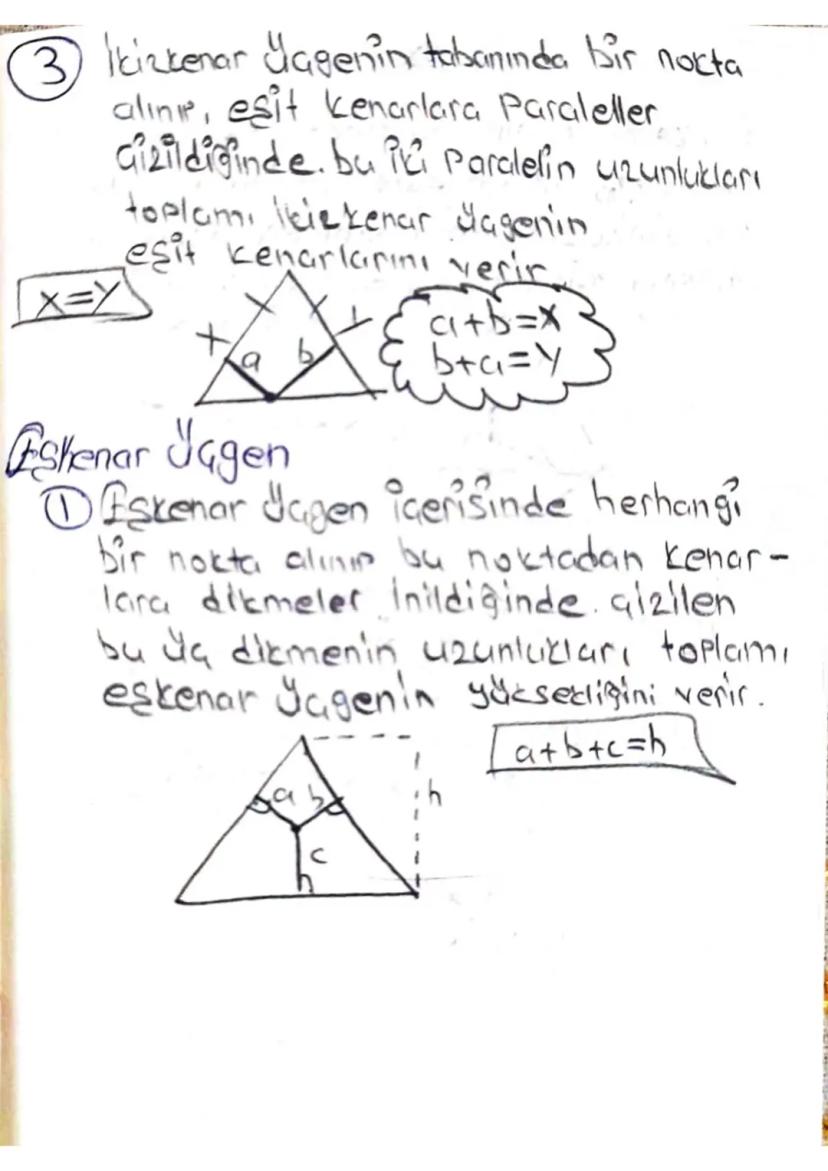 3 İkizkenar Üçgenin tabanında bir nokta
alınıp, eşit kenarlara Paraleller
çizildiğinde. bu iki Paralelin uzunlukları
toplamı ikizkenar üçgenin
eşit kenarlarını verir
x=y
x
y
a b
a+b=x
b+a=y
Eşkenar Üçgen
1 Eşkenar Üçgen içerisinde herhangi
bir nokta alınıp bu noktadan kenar-
lara dikmeler inildiğinde çizilen
bu üç dikmenin uzunlukları toplamı
eşkenar üçgenin yüksekliğini verir.
a+b+c=h
a b
h
c